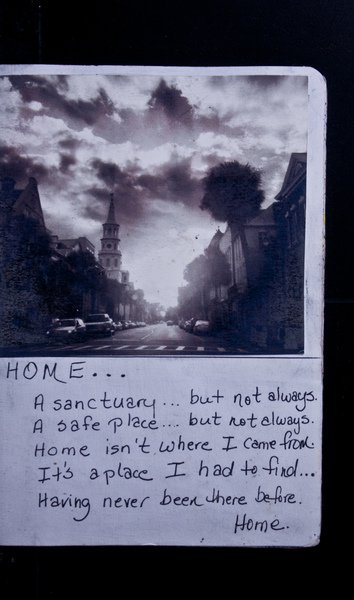 HOME...
A sanctuary... but not always.
A safe place... but not always.
Home isn't where I came from.
It's a place I had to find...
Having never been there before.
Home.